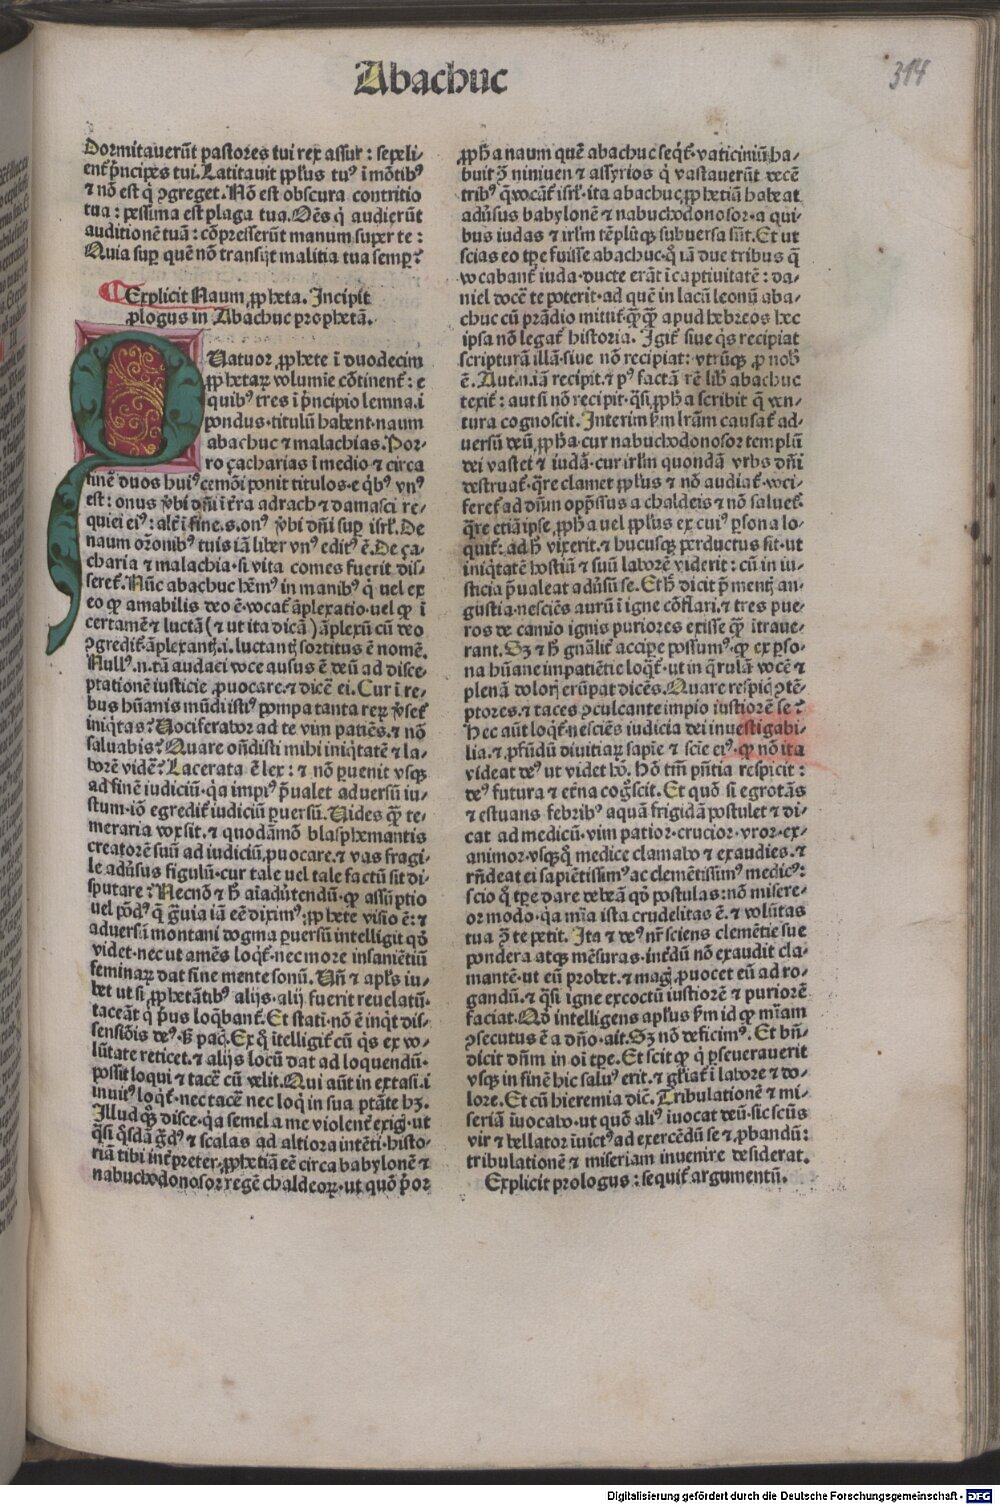 Abachuc
314
Dormitauerūt pastores tui rex assur : sepeli-
ent᷑ p̄ncipes tui. Latitauit pp̄lus tuꝰ ī mōtibꝰ
⁊ nō est qͥ ꝯgreget. Nō est obscura contritio
tua : pessima est plaga tua. Om̄s qͥ audierūt
auditionē tuā : cōpresserūt manum super te :
Quia suꝑ quē nō transijt malitia tua semꝑ?
Explicit Naum ꝓpheta. Incipit
ꝓlogus in Abachuc prophetā.
Quatuor ꝓphete ī duodecim
ꝓphetaꝝ volumīe cōtinent᷑ : e
quibꝰ tres ī p̄ncipio lemna .i.
pondus · titulū habent · naum
abachuc ⁊ malachias. Por-
ro çacharias ī medio ⁊ circa
finē duos huiꝰcemōi ponit titulos · e qͥbꝰ vnꝰ
est : onus v̄bi dn̄i ī t̄ra adrach ⁊ damasci re-
quiei eiꝰ : alt᷑ ī fine .s. onꝰ v̄bi dn̄i suꝑ isrl̄. De
naum or̄onibꝰ tuis iā liber vnꝰ editꝰ ē. De ça-
charia ⁊ malachia · si vita comes fuerit dis-
seret᷑. Nūc abachuc hēmꝰ in manibꝰ qͥ vel ex
eo ꝙ amabilis deo ē · vocat᷑ āplexatio · vel ꝙ ī
certamē ⁊ luctā (⁊ ut ita dicā) āplexū cū deo
ꝯgredit᷑ · āplexantꝭ .i. luctantꝭ sortitus ē nomē.
Nullꝰ .n. tā audaci voce ausus ē deū ad disce-
ptationē iusticie ꝓuocare · ⁊ dicē ei. Cur ī re-
bus hūanis mūdi istiꝰ pompa tanta reꝝ v̄set᷑
iniqͥtas? Vociferabor ad te vim patiēs · ⁊ nō
saluabis? Quare on̄disti mihi iniqͥtatē ⁊ la-
borē vidē? Lacerata ē lex : ⁊ nō ꝑuenit vsqꝫ
ad finē iudiciū · qͥa impiꝰ p̄ualet aduersū iu-
stum · iō egredit᷑ iudiciū ꝑuersū. Vides qͣꝫ te-
meraria vox sit · ⁊ quodāmō blasphemantis
creatorē suū ad iudiciū ꝓuocare · ⁊ vas fragi-
le adūsus figulū · cur tale vel tale factū sit di-
sputare? Necnō ⁊ h̄ aīaduͤtendū · ꝙ assūptio
uel pōdꝰ qͣ g̅uia iā eē diximꝰ : ꝓphete visio ē : ⁊
aduersū montani dogma ꝑuersū intelligit qd̄
videt · nec ut amēs loqͥt᷑ · nec more insaniētiū
feminaꝝ dat sine mente sonū. Vn̄ ⁊ apl̄s iu-
bet ut si ꝓphetātibꝰ alijs · alij fuerit reuelatū ·
taceāt qͥ p̄us loqͣbant᷑. Et statī nō ē inqͥt dis-
sensiōis deꝰ · s̄ pacꝭ. Ex qͦ ītelligit᷑ cū qͥs ex vo-
lūtate reticet · ⁊ alijs locū dat ad loquendū ·
possit loqui ⁊ tacē cū velit. Qui aūt in extasi .i.
inuitꝰ loqͥt᷑ · nec tacē nec loqͥ in sua ptāte hꝫ.
Illud quoqꝫ disce · qͥa semel a me violent᷑ exigꝭ · ut
qͣsi qͦsdā g̅dꝰ ⁊ scalas ad altiora intēti · histo-
riā tibi int̄preter · ꝓphetiā eē circa babylonē ⁊
nabuchodonosor regē chaldeoꝝ · ut quō p̄or
ꝓph̄a naum quē abachuc seqͥt᷑ · vaticiniū ha-
buit ꝯ̄ niniuen ⁊ assyrios qͥ vastauerūt decē
tribꝰ q̄ vocāt᷑ isrl̄ · ita abachuc ꝓphetiā habeat
aduͤsus babylonē ⁊ nabuchodonosor · a qui-
bus iudas ⁊ irl̄m tēplūqꝫ subuersa sūt. Et ut
scias eo tꝑe fuisse abachuc · qͦ iā due tribus q̄
vocabant᷑ iuda · ducte erāt ī captiuitatē : da-
niel docē te poterit · ad quē in lacū leonū aba-
chuc cū prādio mittit᷑ · qͣꝫqͣꝫ apud hebreos hec
ipsa nō legat᷑ historia. Igit᷑ siue qͥs recipiat
scripturā illā · siue nō recipiat : vtrūqꝫ ꝓ nob̄
ē. Aut .n. iā recipit · ⁊ pꝰ factā rē lib᷑ abachuc
texit᷑ : aut si nō recipit · qͣsi ꝓph̄a scribit q̄ ven-
tura cognoscit. Interim ẜm lr̄am causat᷑ ad-
uersū deū ꝓph̄a · cur nabuchodonosor templū
dei vastet ⁊ iudā · cur irl̄m quondā vrbs dn̄i
destruat᷑ · qͣre clamet pp̄lus ⁊ nō audiat᷑ · voci-
feret᷑ ad dn̄un opp̄ssus a chaldeis ⁊ nō saluet᷑ ·
qͣre etiā ipse ꝓph̄a vel pp̄lus ex cuiꝰ ꝑsona lo-
quit᷑ : ad h̄ vixerit · ⁊ hucusqꝫ perductus sit · ut
iniqͥtatē hostiū ⁊ suū laborē viderit : cū in iu-
sticia p̄ualeat adūsū se. Et h̄ dicit p̄ mentꝭ an-
gustia · nesciēs aurū ī igne cōflari · ⁊ tres pue-
ros de camīo ignis puriores exisse qͣꝫ ītraue-
rant. Sꝫ ⁊ h̄ gn̄alit᷑ accipe possumꝰ · ꝙ ex ꝑso-
na hūane impatiētie loqͥt᷑ · ut in q̄rulā vocē ⁊
plenā dolorꝭ erūpat dicēs. Quare respicꝭ ꝯtē-
ptores · ⁊ taces ꝯculcante impio iustiorē se?
Hec aūt loqͥt᷑ · nesciēs iudicia dei inuestigabi-
lia · ⁊ ꝓfūdū diuitiaꝝ sapīe ⁊ scīe eiꝰ · ꝙ nō ita
videat deꝰ ut videt hō. Hō tm̄ pn̄tia respicit :
deꝰ futura ⁊ et̄na cog̅scit. Et quō si egrotās
⁊ estuans febribꝰ aquā frigidā postulet ⁊ di-
cat ad medicū · vim patior · crucior · vror · ex-
animor · vsqꝫqͦ medice clamabo ⁊ exaudies · ⁊
rn̄deat ei sapiētissimꝰ ac clemētissimꝰ medicꝰ :
scio qͦ tꝑe dare debeā qd̄ postulas : nō misere-
or modo · qͥa mīa ista crudelitas ē · ⁊ volūtas
tua ꝯ̄ te petit. Ita ⁊ deꝰ nr̄ sciens clemētie sue
pondera atqꝫ mēsuras · int̄dū nō exaudit cla-
mantē · ut eū probet · ⁊ magꝭ ꝓuocet eū ad ro-
gandū · ⁊ qͣsi igne excoctū iustiorē ⁊ puriorē
faciat. Qd̄ intelligens apl̄us ẜm id ꝙ mīam
ꝯsecutus ē a dn̄o · ait. Sꝫ nō deficimꝰ. Et bn̄-
dicit dn̄m in oī tꝑe. Et scit ꝙ qͥ ꝑseuerauerit
vsqꝫ in finē hic saluꝰ erit · ⁊ gl̄iat᷑ ī labore ⁊ do-
lore. Et cū hieremia dic̄. Tribulationē ⁊ mi-
seriā īuocabo · ut quō aliꝰ īuocat deū · sic scūs
vir ⁊ bellator īuictꝰ ad exercēdū se ⁊ ꝓbandū :
tribulationē ⁊ miseriam inuenire desiderat.
Explicit prologus : sequit᷑ argumentū.
Digitalisierung gefördert durch die Deutsche Forschungsgemeinschaft - DFG